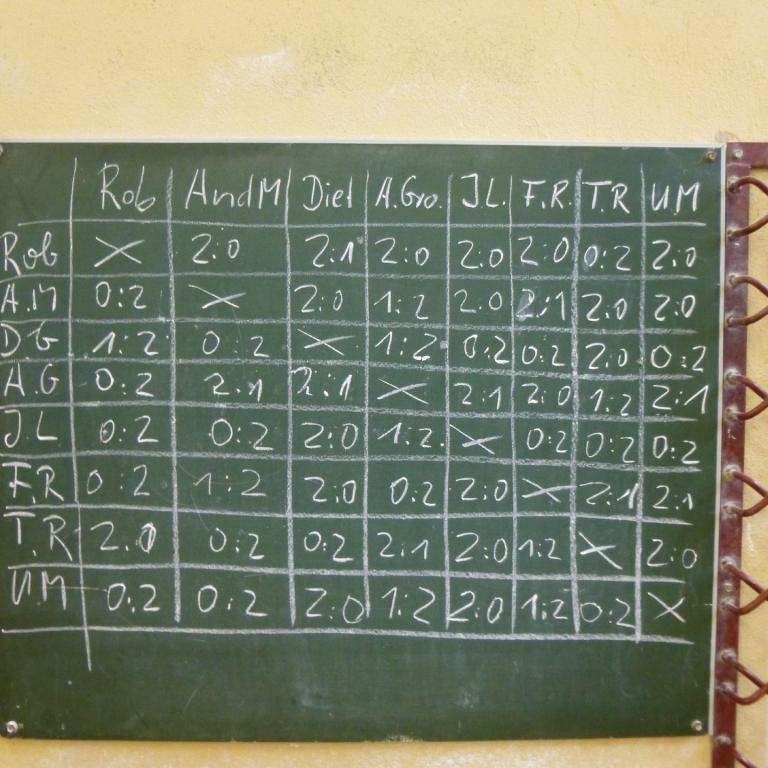 Rob AndM Diet A.Gro. J.L. F.R. T.R U.M
Rob X 2:0 2:1 2:0 2:0 2:0 0:2 2:0
A.M 0:2 X 2:0 1:2 2:0 2:1 2:0 2:0
D.G 1:2 0:2 X 1:2 0:2 0:2 2:0 0:2
A.G 0:2 2:1 2:1 X 2:1 2:0 1:2 2:1
J.L. 0:2 0:2 2:0 1:2 X 0:2 0:2 0:2
F.R 0:2 1:2 2:0 0:2 2:0 X 2:1 2:1
T.R 2:0 0:2 0:2 2:1 2:0 1:2 X 2:0
U.M 0:2 0:2 2:0 1:2 2:0 1:2 0:2 X